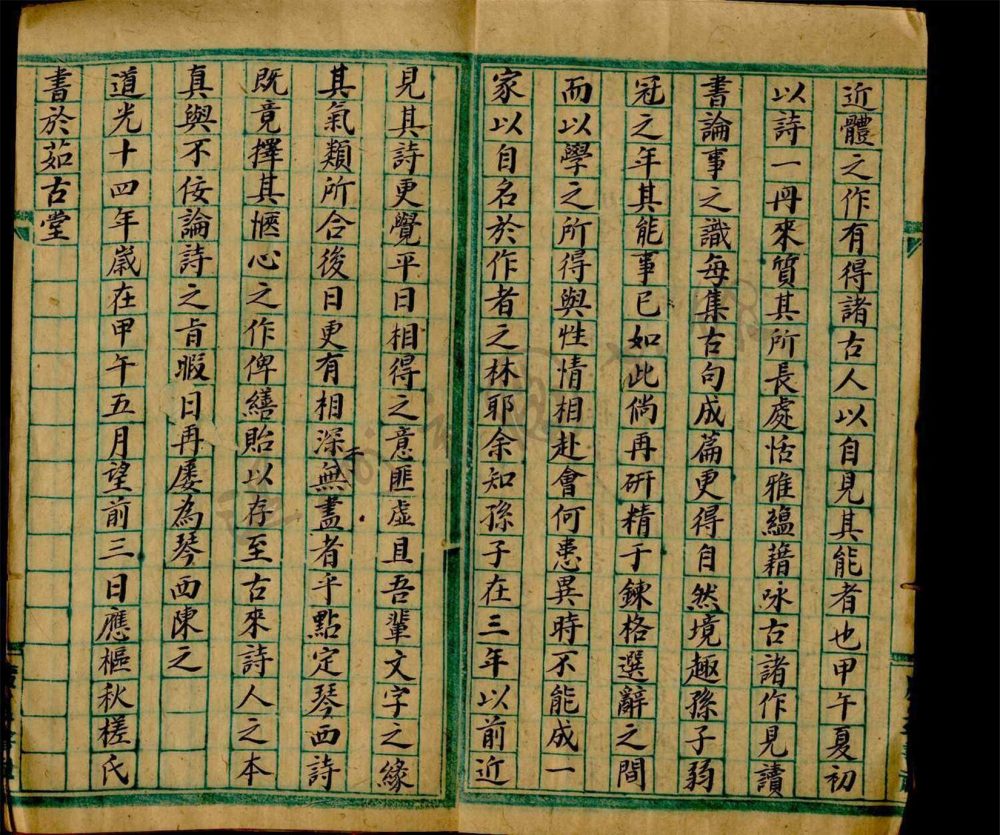 近體之作有得諸古人以自見其能者也甲午夏初
以詩一冊來質其所長處恬雅蘊藉咏古諸作見讀
書論事之識每集古句成篇更得自然境趣孫子弱
冠之年其能事已如此倘再研精于鍊格選辭之間
而以學之所得與性情相赴會何患異時不能成一
家以自名於作者之林耶余知孫子在三年以前近
見其詩更覺平日相得之意匪虛且吾輩文字之緣
其氣類所合後日更有相深於無盡者乎點定琴西詩
既竟擇其愜心之作俾繕貽以存至古來詩人之本
真與不佞論詩之旨暇日再屡為琴西陳之
道光十四年嵗在甲午五月望前三日應樞秋槎氏
書於茹古堂